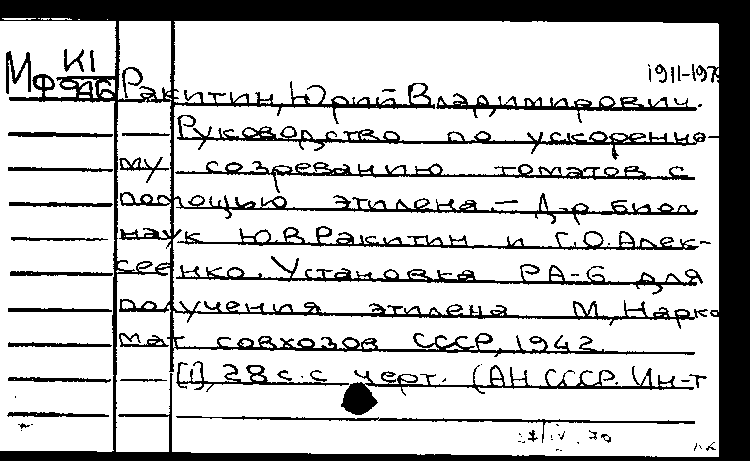 Мф К1/946 1911-1979
Ракитин, Юрий Владимирович.
Руководство по ускоренно-
му созреванию томатов с
помощью этилена – Д-р биол
наук Ю.В.Ракитин и Г.О.Алек-
сеенко. Установка РА-6 для
получения этилена М., Нарко
мат совхозов СССР, 1942
[1], 28 с. с черт. (АН СССР. Ин-т
IV. 70